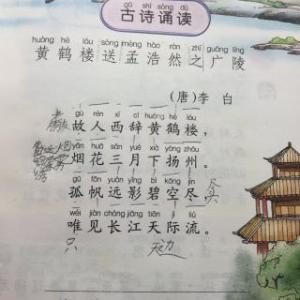 gǔ shī sòng dú
古诗诵读
huáng hè lóu sòng mèng hào rán zhī guǎng líng
黄鹤楼送孟浩然之广陵
(唐)李 白
gù rén xī cí huáng hè lóu
故人西辞黄鹤楼，
yān huā sān yuè xià yáng zhōu
烟花三月下扬州。
gū fān yuǎn yǐng bì kōng jìn
孤帆远影碧空尽
wéi jiàn cháng jiāng tiān jì liú
唯见长江天际流。
只
天边